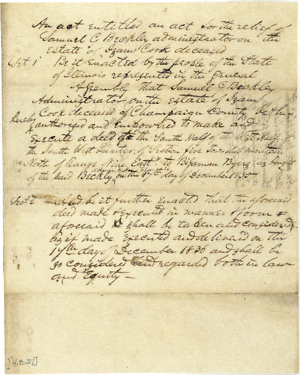 An act entitled an act for the relief of
Samuel C Beckley administrator on the
estate of Isam Cook deceased
Sect 1 Be it Enacted by the people of the State
of Illinois represented in the General
Assembly that Samuel C Beckley
Administrator on the estate of Isam
Cook deceased of Champaign County be & is
hereby authorized and empowered to make and
Execute a deed of the South Half of the
the South West Quarter of Section five Township nineteen
North of Range Nine East to Benjamin
of the said Beckley on the day of December 1835
Sect 2 And be it further enacted that the aforesaid
deed made & executed in manner & form
aforesaid shall be taken and considered
as if made Executed and delivered on the
17th day of December 1835 and shall be
so considered and regarded both in law
and Equity